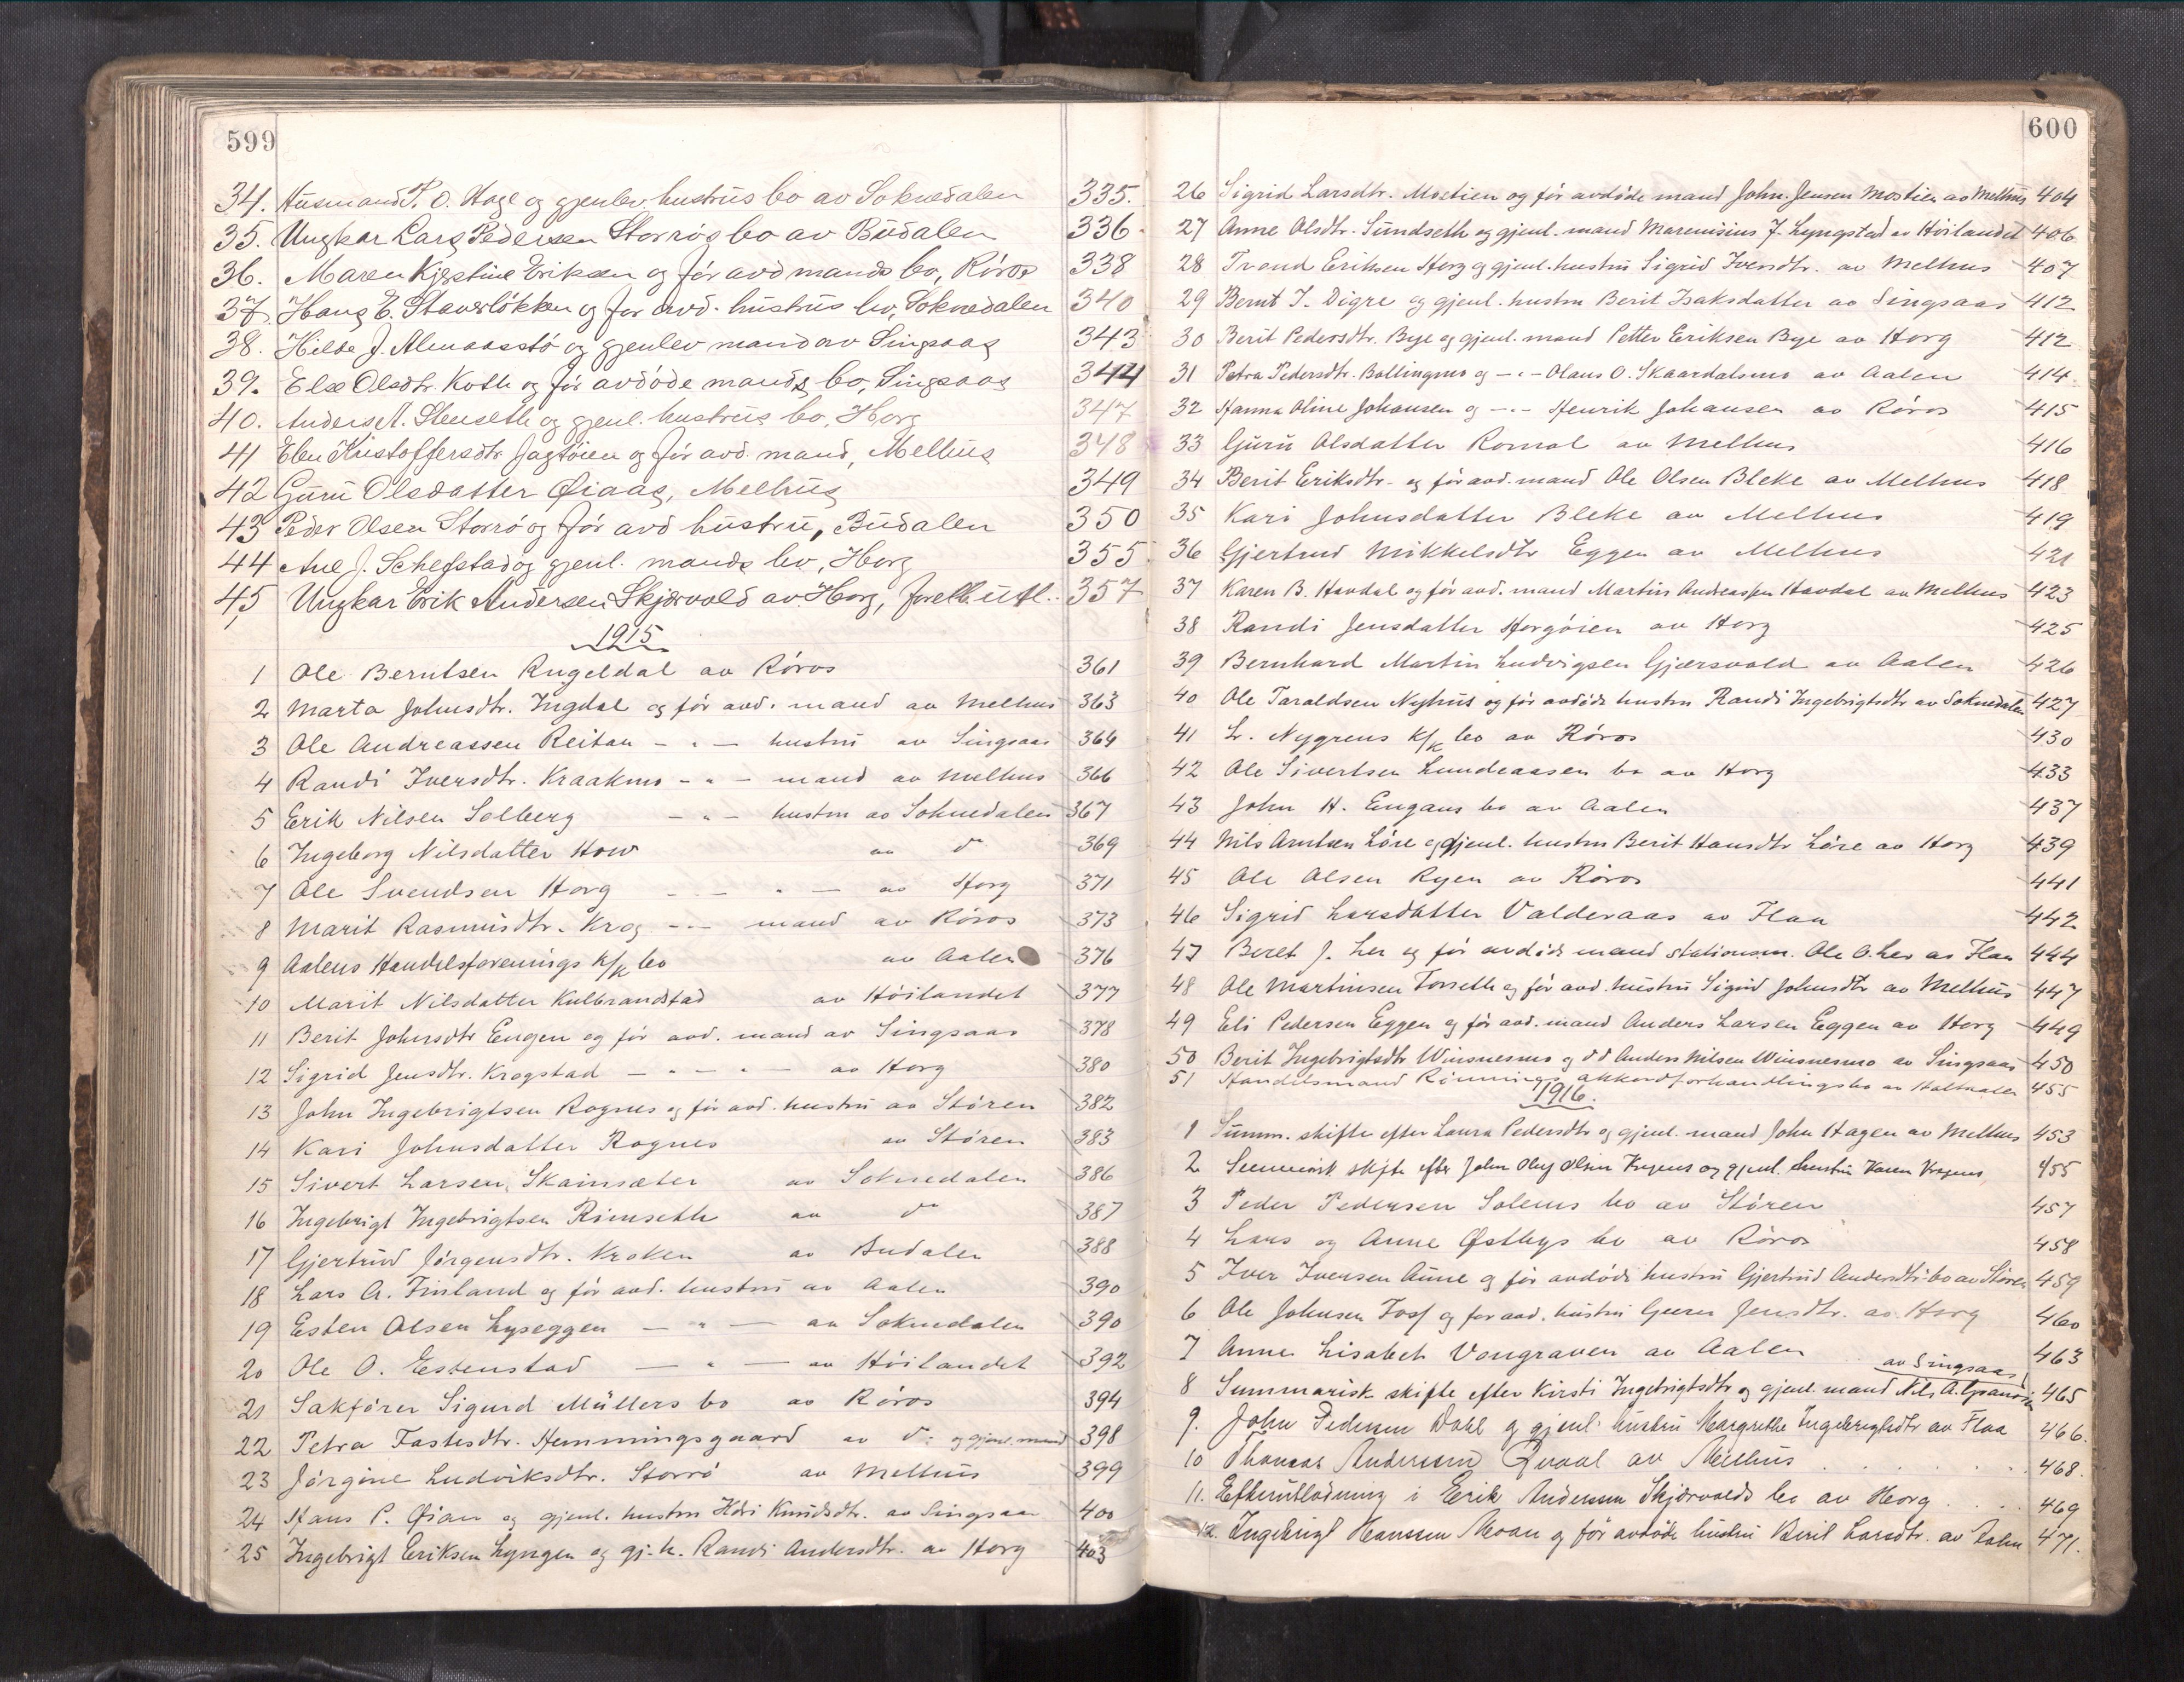 599
34. Husmand P. O. Hage og gjenlev. hustrus bo av Soknedalen 335.
35. Ungkar Lars Pedersen Storrøs bo av Budalen 336.
36. Maren Kjerstine Eriksen og før avd mands bo, Røros 338
37. Hans E. Stavsløkken og før avd. hustrus bo, Soknedalen 340
38. Hilde J. Almaasstø og gjenlev mand av Singsaas 343
39. Else Olsdtr. Koth og før avdøde mands bo, Singsaas 344
40. Anders A. Stenseth og gjenl. hustrus bo, Horg 347
41 Elen Kristoffersdtr. Jagtøien og før avd. mand, Melhus 348
42 Guru Olsdatter Øiaas, Melhus 349
43 Peder Olsen Storrø og før avd hustru, Budalen 350
44 Ane J. Schefstad og gjenl. mands bo, Horg 355
45, Ungkar Erik Andersen Skjærvold av Horg, forelb. utl. 357
1915
1 Ole Berntsen Rugeldal av Røros 361
2 Marta Johnsdtr. Ingdal og før avd. mand av Melhus 363
3 Ole Andreassen Reitan - " - hustru av Singsaas 364
4 Randi Iversdtr. Kraakmo - " - mand av Melhus 366
5 Erik Nilsen Solberg - " - hustru av Soknedalen 367
6 Ingeborg Nilsdatter Hov av do 369
7 Ole Svendsen Horg - - " - av Horg 371
8 Marit Rasmusdtr. Krog - - mand av Røros 373
9 Aalens Handelsforenings k/k bo av Aalen 376
10 Marit Nilsdatter Kulbrandstad av Høilandet 377
11 Berit Johnsdtr Engen og før avd. mand av Singsaas 378
12 Sigrid Jensdtr. Krogstad - " - " - av Horg 380
13 John Ingebrigtsen Rognes og før avd. hustru av Støren 382
14 Kari Johnsdatter Rognes av Støren 383
15 Sivert Larsen Skainsæter av Soknedalen 386
16 Ingebrigt Ingebrigtsen Rimseth av do 387
17 Gjertrud Jørgensdtr. Kroken av Budalen 388
18 Lars A. Finland og før avd. hustru av Aalen 390
19 Esten Olsen Lyseggen - " - av Soknedalen 390
20 Ole O. Estenstad - " - av Høilandet 392
21 Sakfører Sigurd Müllers bo av Røros 394
22 Petra Fastesdtr. Hemmingsgaard av do og gjenl. mand 398
23 Jørgine Ludviksdtr. Storrø av Melhus 399
24 Hans P. Øian og gjenl. hustru Kari Knudsdtr. av Singsaas 400
25 Ingebrigt Eriksen Lyngen og gj. h. Randi Andersdtr. av Horg 403
600
26 Sigrid Larsdtr. Mostien og før avdøde mand John Jensen Mostien av Melhus 404
27 Anne Olsdtr. Sundseth og gjenl. mand Marenisius J. Lyngstad av Høilandet 406
28 Trond Eriksen Horg og gjenl. hustru Sigrid Iversdtr. av Melhus 407
29 Bernt J. Digre og gjenl. hustru Berit Isaksdatter av Singsaas 412
30 Berit Pedersdtr. Bye og gjenl. mand Petter Eriksen Bye av Horg 412
31 Petra Pedersdtr. Bollingmo og - " - Olaus O. Skaardalsmo av Aalen 414
32 Hanna Oline Johansen og - " - Henrik Johansen av Røros 415
33 Guru Olsdatter Romol av Melhus 416
34 Berit Eriksdtr. og før avd. mand Ole Olsen Bleke av Melhus 418
35 Kari Johnsdatter Bleke av Melhus 419
36 Gjertrud Mikkelsdtr Eggen av Melhus 421
37 Karen B. Havdal og før avd. mand Martin Andreassen Havdal av Melhus 423
38 Randi Jensdatter Horgøien av Horg 425
39 Bernhard Martin Ludvigsen Gjærsvold av Aalen 426
40 Ole Taraldsen Nyhus og før avdøde hustru Randi Ingebrigtsdtr av Soknedalen 427
41 L. Nygrens k/k bo av Røros 430
42 Ole Sivertsen Lundeaasen bo av Horg 433
43 John H. Engans bo av Aalen 437
44 Nils Arntsen Løre og gjenl. hustru Berit Hansdtr Løre av Horg 439
45 Ole Olsen Ryen av Røros 441
46 Sigrid Larsdatter Valderaas av Flaa 442
47 Beret J. Ler og før avdøde mand stationsm. Ole O. Ler av Flaa 444
48 Ole Martinsen Forseth og før avd. hustru Sigrid Johnsdtr av Melhus 447
49 Eli Pedersen Eggen og før avd. mand Anders Larsen Eggen av Horg 449
50 Berit Ingebrigtsdtr Winsnesmo og do Anders Nilsen Winsnesmo av Singsaas 450
51 Handelsmand Rønnings akkordforhandlingsbo av Holtaalen 455
1916.
1 Summ. skifte efter Laura Pedersdtr og gjenl. mand John Hagen av Melhus 453
2 Summarisk skifte efter John Oluf Olsen Krogens og gjenl. hustru Karen Krogens 455
3 Peder Pedersen Solems bo av Støren 457
4 Lars og Anne Østbys bo av Røros 458
5 Iver Iversen Aune og før avdøde hustru Gjertrud Andersdtr. bo av Støren 459
6 Ole Johnsen Foss og før avd. hustru Guru Jensdtr. av Horg 460
7 Anne Lisabeth Vongraven av Aalen 463
8 Summarisk skifte efter Kirsti Ingebrigtsdtr og gjenl. mand Nils A. av Singsaas 465
9. John Pedersen Dahl og gjenl. hustru Margrethe Ingebrigtsdtr av Flaa 466.
10 Thomas Andersen Kvaal av Melhus 468.
11. Efterutlodning i Erik Andersen Skjærvolds bo av Horg 469
12. Ingebrigt Hanssen Moan og før avdøde hustru Beril Larsdtr. av Aalen 471.